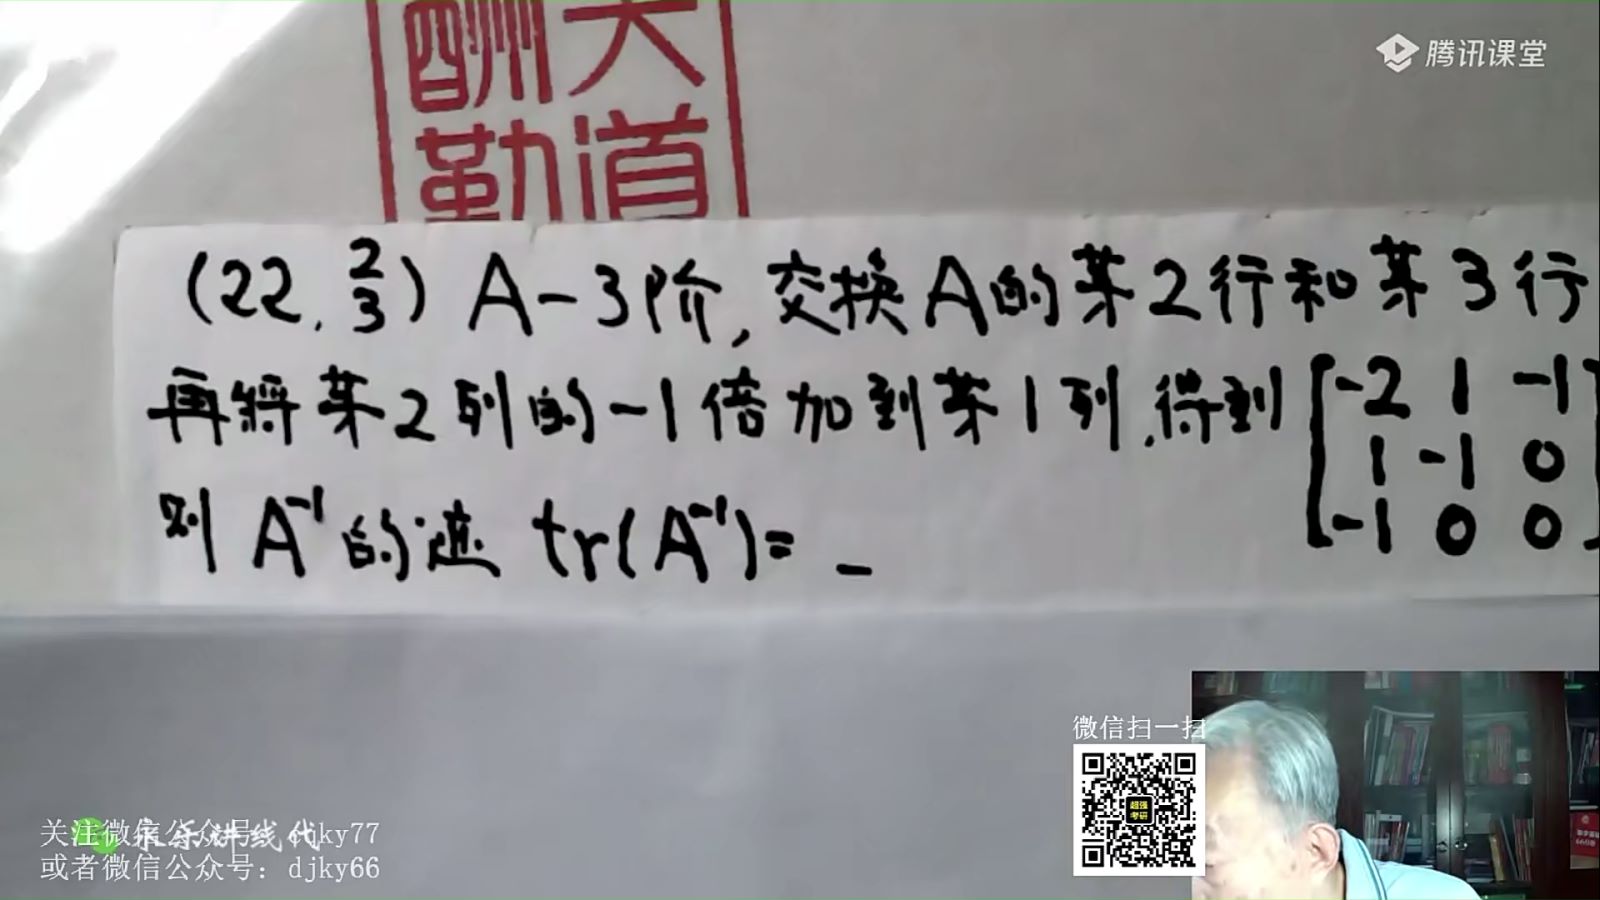 酬天
勤道
腾讯课堂
(22, 2/3) A-3阶, 交换A的第2行和第3行
再将第2列的-1倍加到第1列,得到 [-2 1 -1
1 -1 0
-1 0 0]
则 A⁻¹的迹 tr(A⁻¹)= _
微信扫一扫
超强
考研
永乐讲线代
关注微信公众号: djky77
或者微信公众号: djky66